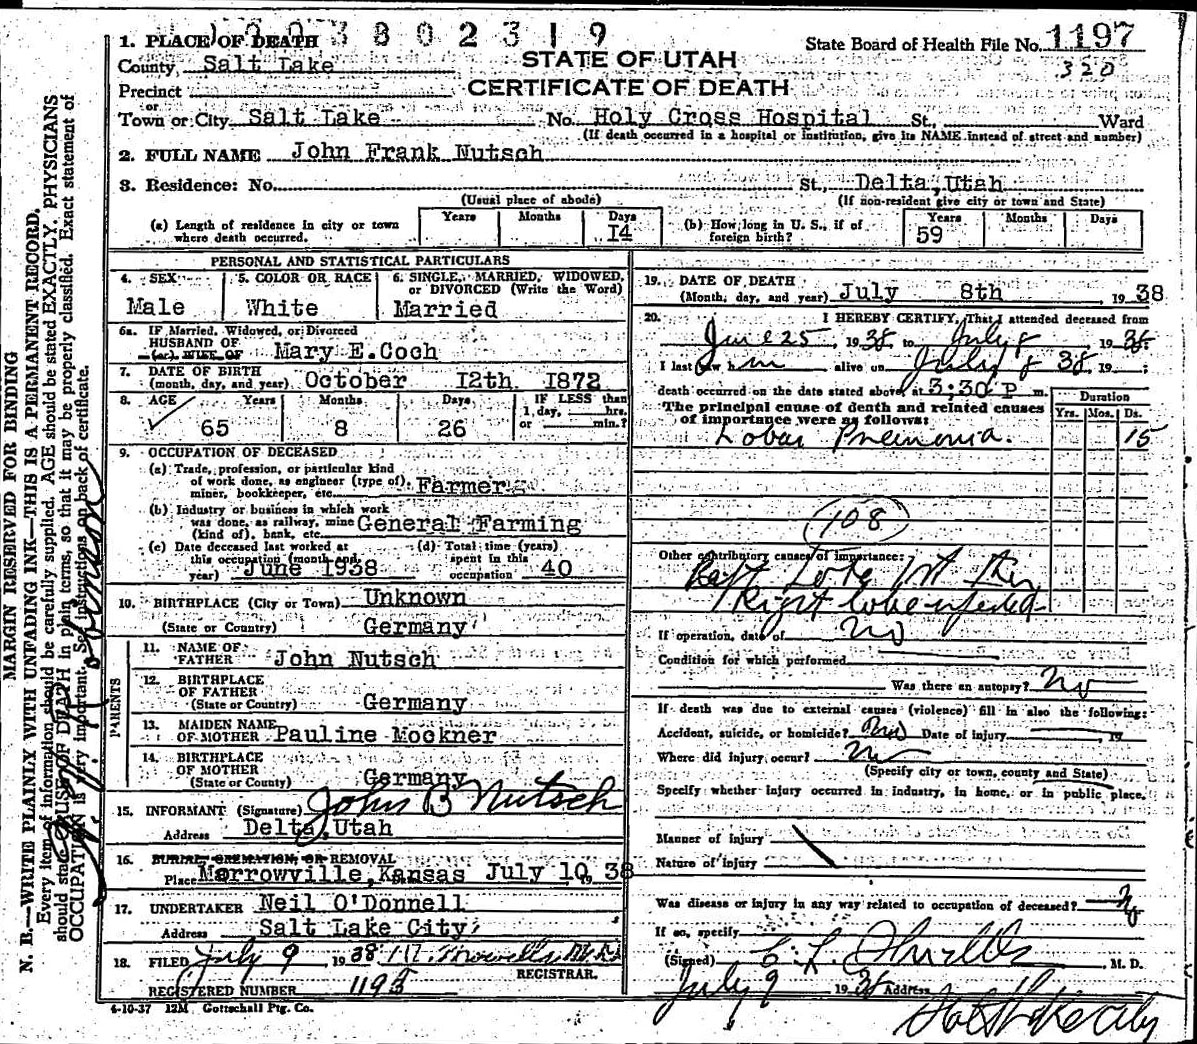 19380 2319
1. PLACE OF DEATH
County Salt Lake
Precinct
or
Town or City Salt Lake No. Holy Cross Hospital St., Ward
(If death occurred in a hospital or institution, give its NAME instead of street and number)
STATE OF UTAH
CERTIFICATE OF DEATH
State Board of Health File No. 1197
320
2. FULL NAME John Frank Nutsch
3. Residence: No. St., Delta, Utah
(Usual place of abode) (If non-resident give city or town and State)
(a) Length of residence in city or town where death occurred. Years Months Days 14
(b) How long in U. S., if of foreign birth? Years 59 Months Days
PERSONAL AND STATISTICAL PARTICULARS
4. SEX Male
5. COLOR OR RACE White
6. SINGLE, MARRIED, WIDOWED, or DIVORCED (Write the Word) Married
6a. If Married, Widowed, or Divorced
HUSBAND OF
(or) WIFE OF Mary E. Coch
7. DATE OF BIRTH
(month, day, and year) October 12th 1872
8. AGE Years 65 Months 8 Days 26 IF LESS than 1 day, hrs. or min.?
9. OCCUPATION OF DECEASED
(a) Trade, profession, or particular kind
of work done, as engineer (type of),
miner, bookkeeper, etc. Farmer
(b) Industry or business in which work
was done, as railway, mine
(kind of), bank, etc. General Farming
(c) Date deceased last worked at
this occupation (month and
year) June 1938
(d) Total time (years)
spent in this
occupation 40
10. BIRTHPLACE (City or Town) Unknown
(State or Country) Germany
PARENTS
11. NAME OF FATHER John Nutsch
12. BIRTHPLACE OF FATHER
(State or Country) Germany
13. MAIDEN NAME OF MOTHER Pauline Mockner
14. BIRTHPLACE OF MOTHER
(State or County) Germany
15. INFORMANT (Signature) John B Nutsch
Address Delta, Utah
16. BURIAL, CREMATION, OR REMOVAL
Place Morrowville, Kansas July 10, 38
17. UNDERTAKER Neil O'Donnell
Address Salt Lake City
18. FILED July 9 1938
REGISTRAR.
REGISTERED NUMBER 1195
4-10-37 12M Gottschall Ptg. Co.
19. DATE OF DEATH
(Month, day, and year) July 8th 1938
20. I HEREBY CERTIFY, That I attended deceased from
June 25, 1938, to July 8 1938
I last saw him alive on July 8 38, 19 ;
death occurred on the date stated above, at 3:30 P m.
The principal cause of death and related causes
of importance were as follows:
Duration
Yrs. Mos. Ds.
Lobar Pneumonia. 15
108
Other contributory causes of importance:
Left Lobe 1st then
Right lobe infected
If operation, date of No
Condition for which performed
Was there an autopsy? No
If death was due to external causes (violence) fill in also the following:
Accident, suicide, or homicide? No Date of injury , 19
Where did injury occur? No
(Specify city or town, county and State)
Specify whether injury occurred in industry, in home, or in public place.
Manner of injury
Nature of injury
Was disease or injury in any way related to occupation of deceased? No
If so, specify
(Signed) M. D.
July 9 1938 Address Salt Lake City
MARGIN RESERVED FOR BINDING
N. B.—WRITE PLAINLY WITH UNFADING INK—THIS IS A PERMANENT RECORD.
Every item of information should be carefully supplied. AGE should be stated EXACTLY. PHYSICIANS
should state CAUSE OF DEATH in plain terms, so that it may be properly classified. Exact statement of
OCCUPATION is very important. See instructions on back of certificate.